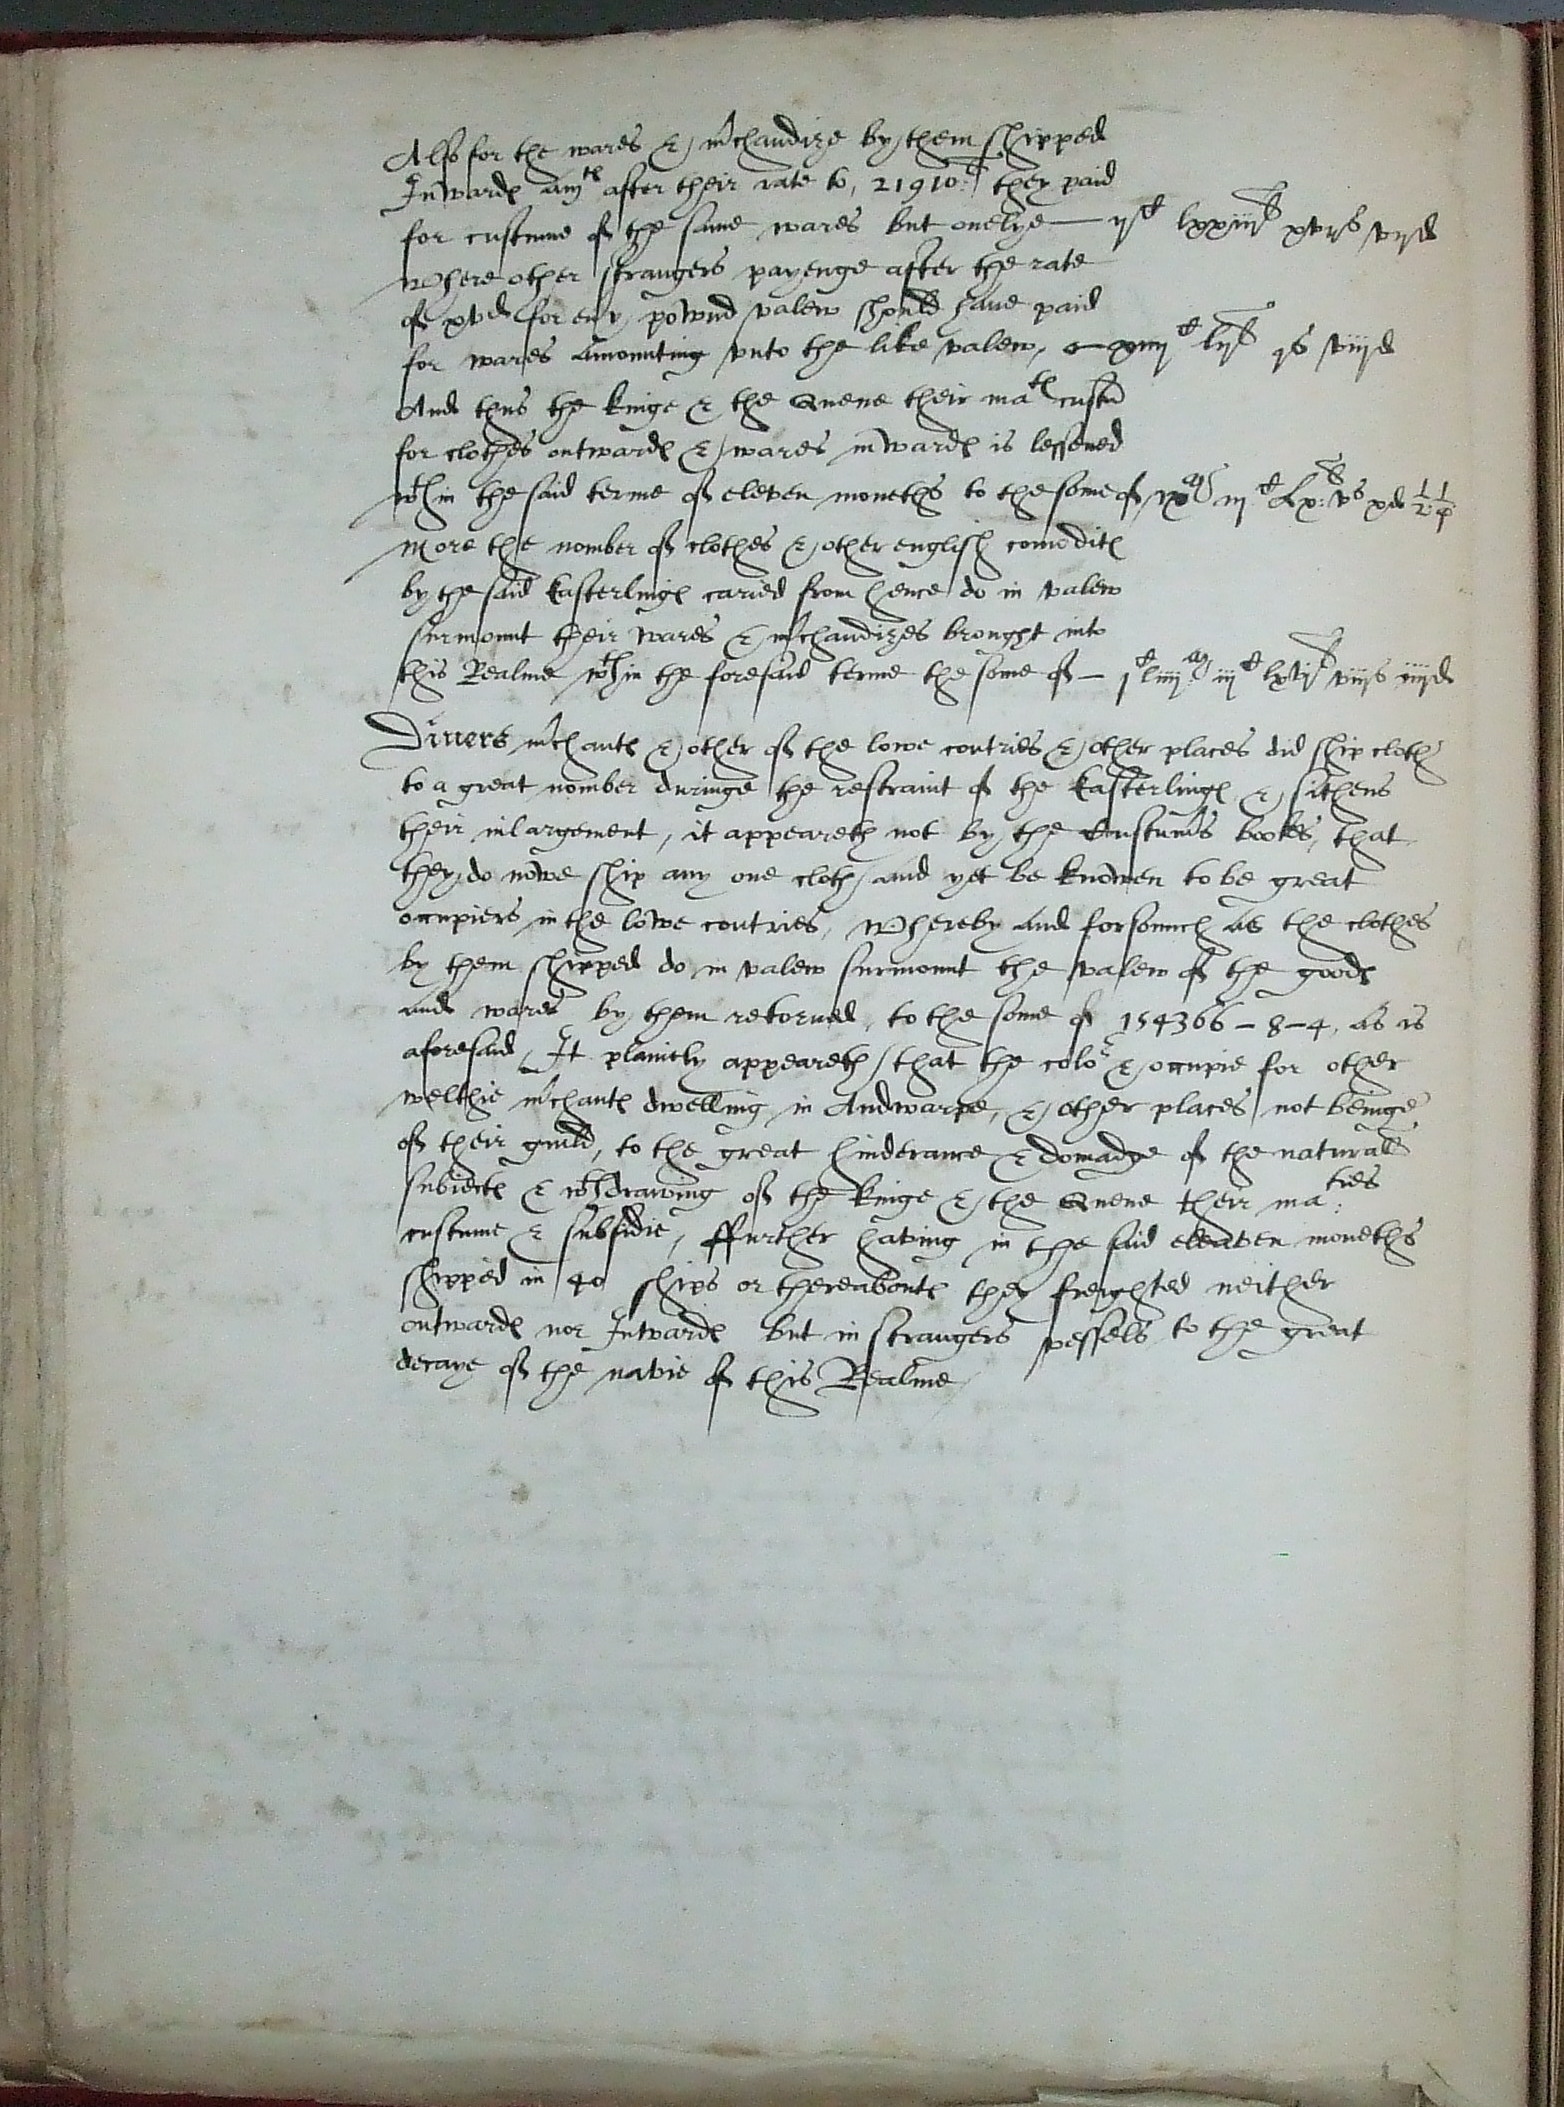 Also for the wares & m'chandize by them shipped
Inward am^t after their rate to, 21910:^li they paid
for custume of the same wares but onelye — ij^c lxxiij^li xvijs vijd
Where other strangers payenge after the rate
of xvd for eu'y pownd valew should have paid
for wares amounting vnto the like valew,
And thus the kinge & the Quene their ma^tes custu'
for clothes outwardes & wares inwardes is lessened
w^thin the said terme of eleven moneths to the some of
More the nomber of clothes & other english comodites
by the said Easterlinges caried from hence do in valew
surmount their wares & m'chandizes brought into
this Realme w^thin the foresaid terme the some of — j^c liiij^M iij^c lxvj^li viijs iiijd
Divers m'chantes & other of the lowe contries & other places did ship cloth
to a great nomber duringe the restraint of the Easterlinges & sithens
their inlargement, it appeareth not by the Custum's bookes, that
they do nowe ship any one cloth, and yet be knowen to be great
occupiers in the lowe contries, Whereby and forsomuch as the clothes
by them shipped do in valew surmount the valew of the goodes
and wares by them retorned, to the some of 154366 – 8 – 4, as is
aforesaid, It plainely appeareth that the colo^r & occupie for other
welthie m'chantes dwelling in Andwarpe, & other places not beinge
of their guild, to the great hinderance & domadge of the naturall
subiectes & w^thdrawing of the kinge & the Quene their ma:^ties
custume & subsidie, ffurther having in the said eleaven moneths
shipped in 40 ships or thereaboutes they freighted neither
outwardes nor Inwardes but in strangers vessels to the great
decaye of the navie of this Realme